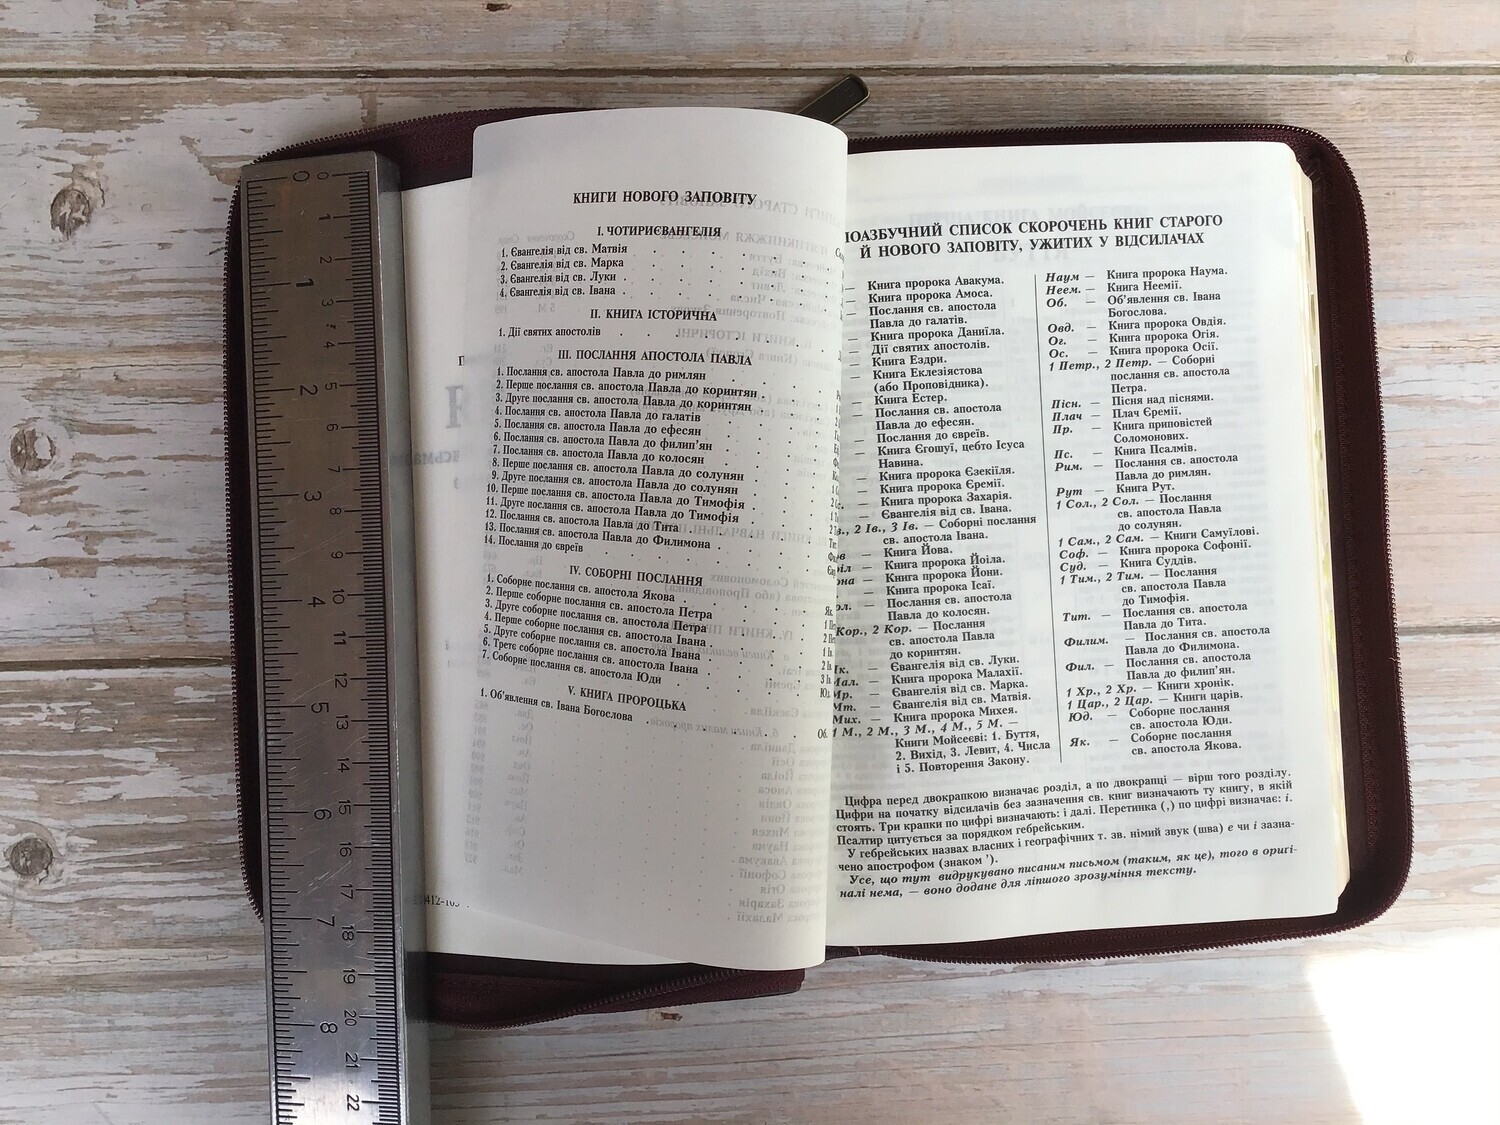 КНИГИ НОВОГО ЗАПОВІТУ
І. ЧОТИРИЄВАНГЕЛІЯ
1. Євангелія від св. Матвія
2. Євангелія від св. Марка
3. Євангелія від св. Луки
4. Євангелія від св. Івана
ІІ. КНИГА ІСТОРИЧНА
1. Дії святих апостолів
ІІІ. ПОСЛАННЯ АПОСТОЛА ПАВЛА
1. Послання св. апостола Павла до римлян
2. Перше послання св. апостола Павла до коринтян
3. Друге послання св. апостола Павла до коринтян
4. Послання св. апостола Павла до галатів
5. Послання св. апостола Павла до ефесян
6. Послання св. апостола Павла до филип'ян
7. Послання св. апостола Павла до колосян
8. Перше послання св. апостола Павла до солунян
9. Друге послання св. апостола Павла до солунян
10. Перше послання св. апостола Павла до Тимофія
11. Друге послання св. апостола Павла до Тимофія
12. Послання св. апостола Павла до Тита
13. Послання св. апостола Павла до Филимона
14. Послання до євреїв
IV. СОБОРНІ ПОСЛАННЯ
1. Соборне послання св. апостола Якова
2. Перше соборне послання св. апостола Петра
3. Друге соборне послання св. апостола Петра
4. Перше соборне послання св. апостола Івана
5. Друге соборне послання св. апостола Івана
6. Третє соборне послання св. апостола Івана
7. Соборне послання св. апостола Юди
V. КНИГА ПРОРОЦЬКА
1. Об'явлення св. Івана Богослова
СПИСОК СКОРОЧЕНЬ КНИГ СТАРОГО
Й НОВОГО ЗАПОВІТУ, УЖИТИХ У ВІДСИЛАЧАХ
— Книга пророка Авакума.
— Книга пророка Амоса.
— Послання св. апостола
Павла до галатів.
— Книга пророка Даниїла.
— Дії святих апостолів.
— Книга Ездри.
— Книга Еклезіястова
(або Проповідника).
— Книга Естер.
— Послання св. апостола
Павла до ефесян.
— Послання до євреїв.
— Книга Єгошуї, цебто Ісуса
Навина.
— Книга пророка Єзекіїля.
— Книга пророка Єремії.
— Книга пророка Захарія.
— Євангелія від св. Івана.
2 Ів., 3 Ів. — Соборні послання
св. апостола Івана.
— Книга Йова.
— Книга пророка Йоіла.
— Книга пророка Йони.
— Книга пророка Ісаї.
— Послання св. апостола
Павла до колосян.
Кор., 2 Кор. — Послання
св. апостола Павла
до коринтян.
— Євангелія від св. Луки.
— Книга пророка Малахії.
Мр. — Євангелія від св. Марка.
Мт. — Євангелія від св. Матвія.
Мих. — Книга пророка Михея.
1 М., 2 М., 3 М., 4 М., 5 М. —
Книги Мойсеєві: 1. Буття,
2. Вихід, 3. Левит, 4. Числа
і 5. Повторення Закону.
Наум — Книга пророка Наума.
Неем. — Книга Неемії.
Об. — Об'явлення св. Івана
Богослова.
Овд. — Книга пророка Овдія.
Ог. — Книга пророка Огія.
Ос. — Книга пророка Осії.
1 Петр., 2 Петр. — Соборні
послання св. апостола
Петра.
Пісн. — Пісня над піснями.
Плач — Плач Єремії.
Пр. — Книга приповістей
Соломонових.
Пс. — Книга Псалмів.
Рим. — Послання св. апостола
Павла до римлян.
Рут — Книга Рут.
1 Сол., 2 Сол. — Послання
св. апостола Павла
до солунян.
1 Сам., 2 Сам. — Книги Самуїлові.
Соф. — Книга пророка Софонії.
Суд. — Книга Суддів.
1 Тим., 2 Тим. — Послання
св. апостола Павла
до Тимофія.
Тит. — Послання св. апостола
Павла до Тита.
Филим. — Послання св. апостола
Павла до Филимона.
Фил. — Послання св. апостола
Павла до филип'ян.
1 Хр., 2 Хр. — Книги хронік.
1 Цар., 2 Цар. — Книги царів.
Юд. — Соборне послання
св. апостола Юди.
Як. — Соборне послання
св. апостола Якова.
Цифра перед двокрапкою визначає розділ, а по двокрапці — вірш того розділу.
Цифри на початку відсилачів без зазначення св. книг визначають ту книгу, в якій
стоять. Три крапки по цифрі визначають: і далі. Перетинка (,) по цифрі визначає: і.
Псалтир цитується за порядком гебрейським.
У гебрейських назвах власних і географічних т. зв. німий звук (шва) е чи і зазна-
чено апострофом (знаком ').
Усе, що тут видрукувано писаним письмом (таким, як це), того в оригі-
налі нема, — воно додане для ліпшого зрозуміння тексту.
0 1 2 3 4 5 6 7 8
0 1 2 3 4 5 6 7 8 9 10 11 12 13 14 15 16 17 18 19 20 21 22